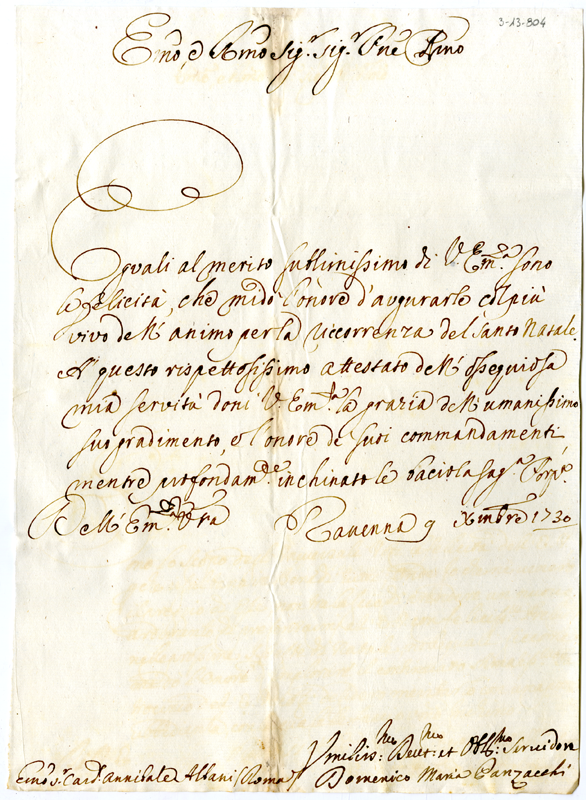 3-13-804
Emo, e Rmo Sig.r Sig.r Pne Pmo
Eguali al merito sublimissimo di V. Em.a sono
le felicità, che mi dò l'onore d'augurarle col più
vivo dell'animo per la riccorrenza del Santo Natale.
A questo rispettosissimo attestato dell'ossequiosa
mia servitù doni V. Em.a la grazia dell'umanissimo
suo gradimento, e l'onore de suoi commandamenti
mentre profondam.te inchinato le bacio la sag.a Porp.a
Dell'Em.a Vra Ravenna 9 Xmbre 1730
Umiliss.mo Devot.mo et Obblig.mo Servidore
Emo S.r Card. Annibale Albani (Roma) Domenico Maria Panzacchi